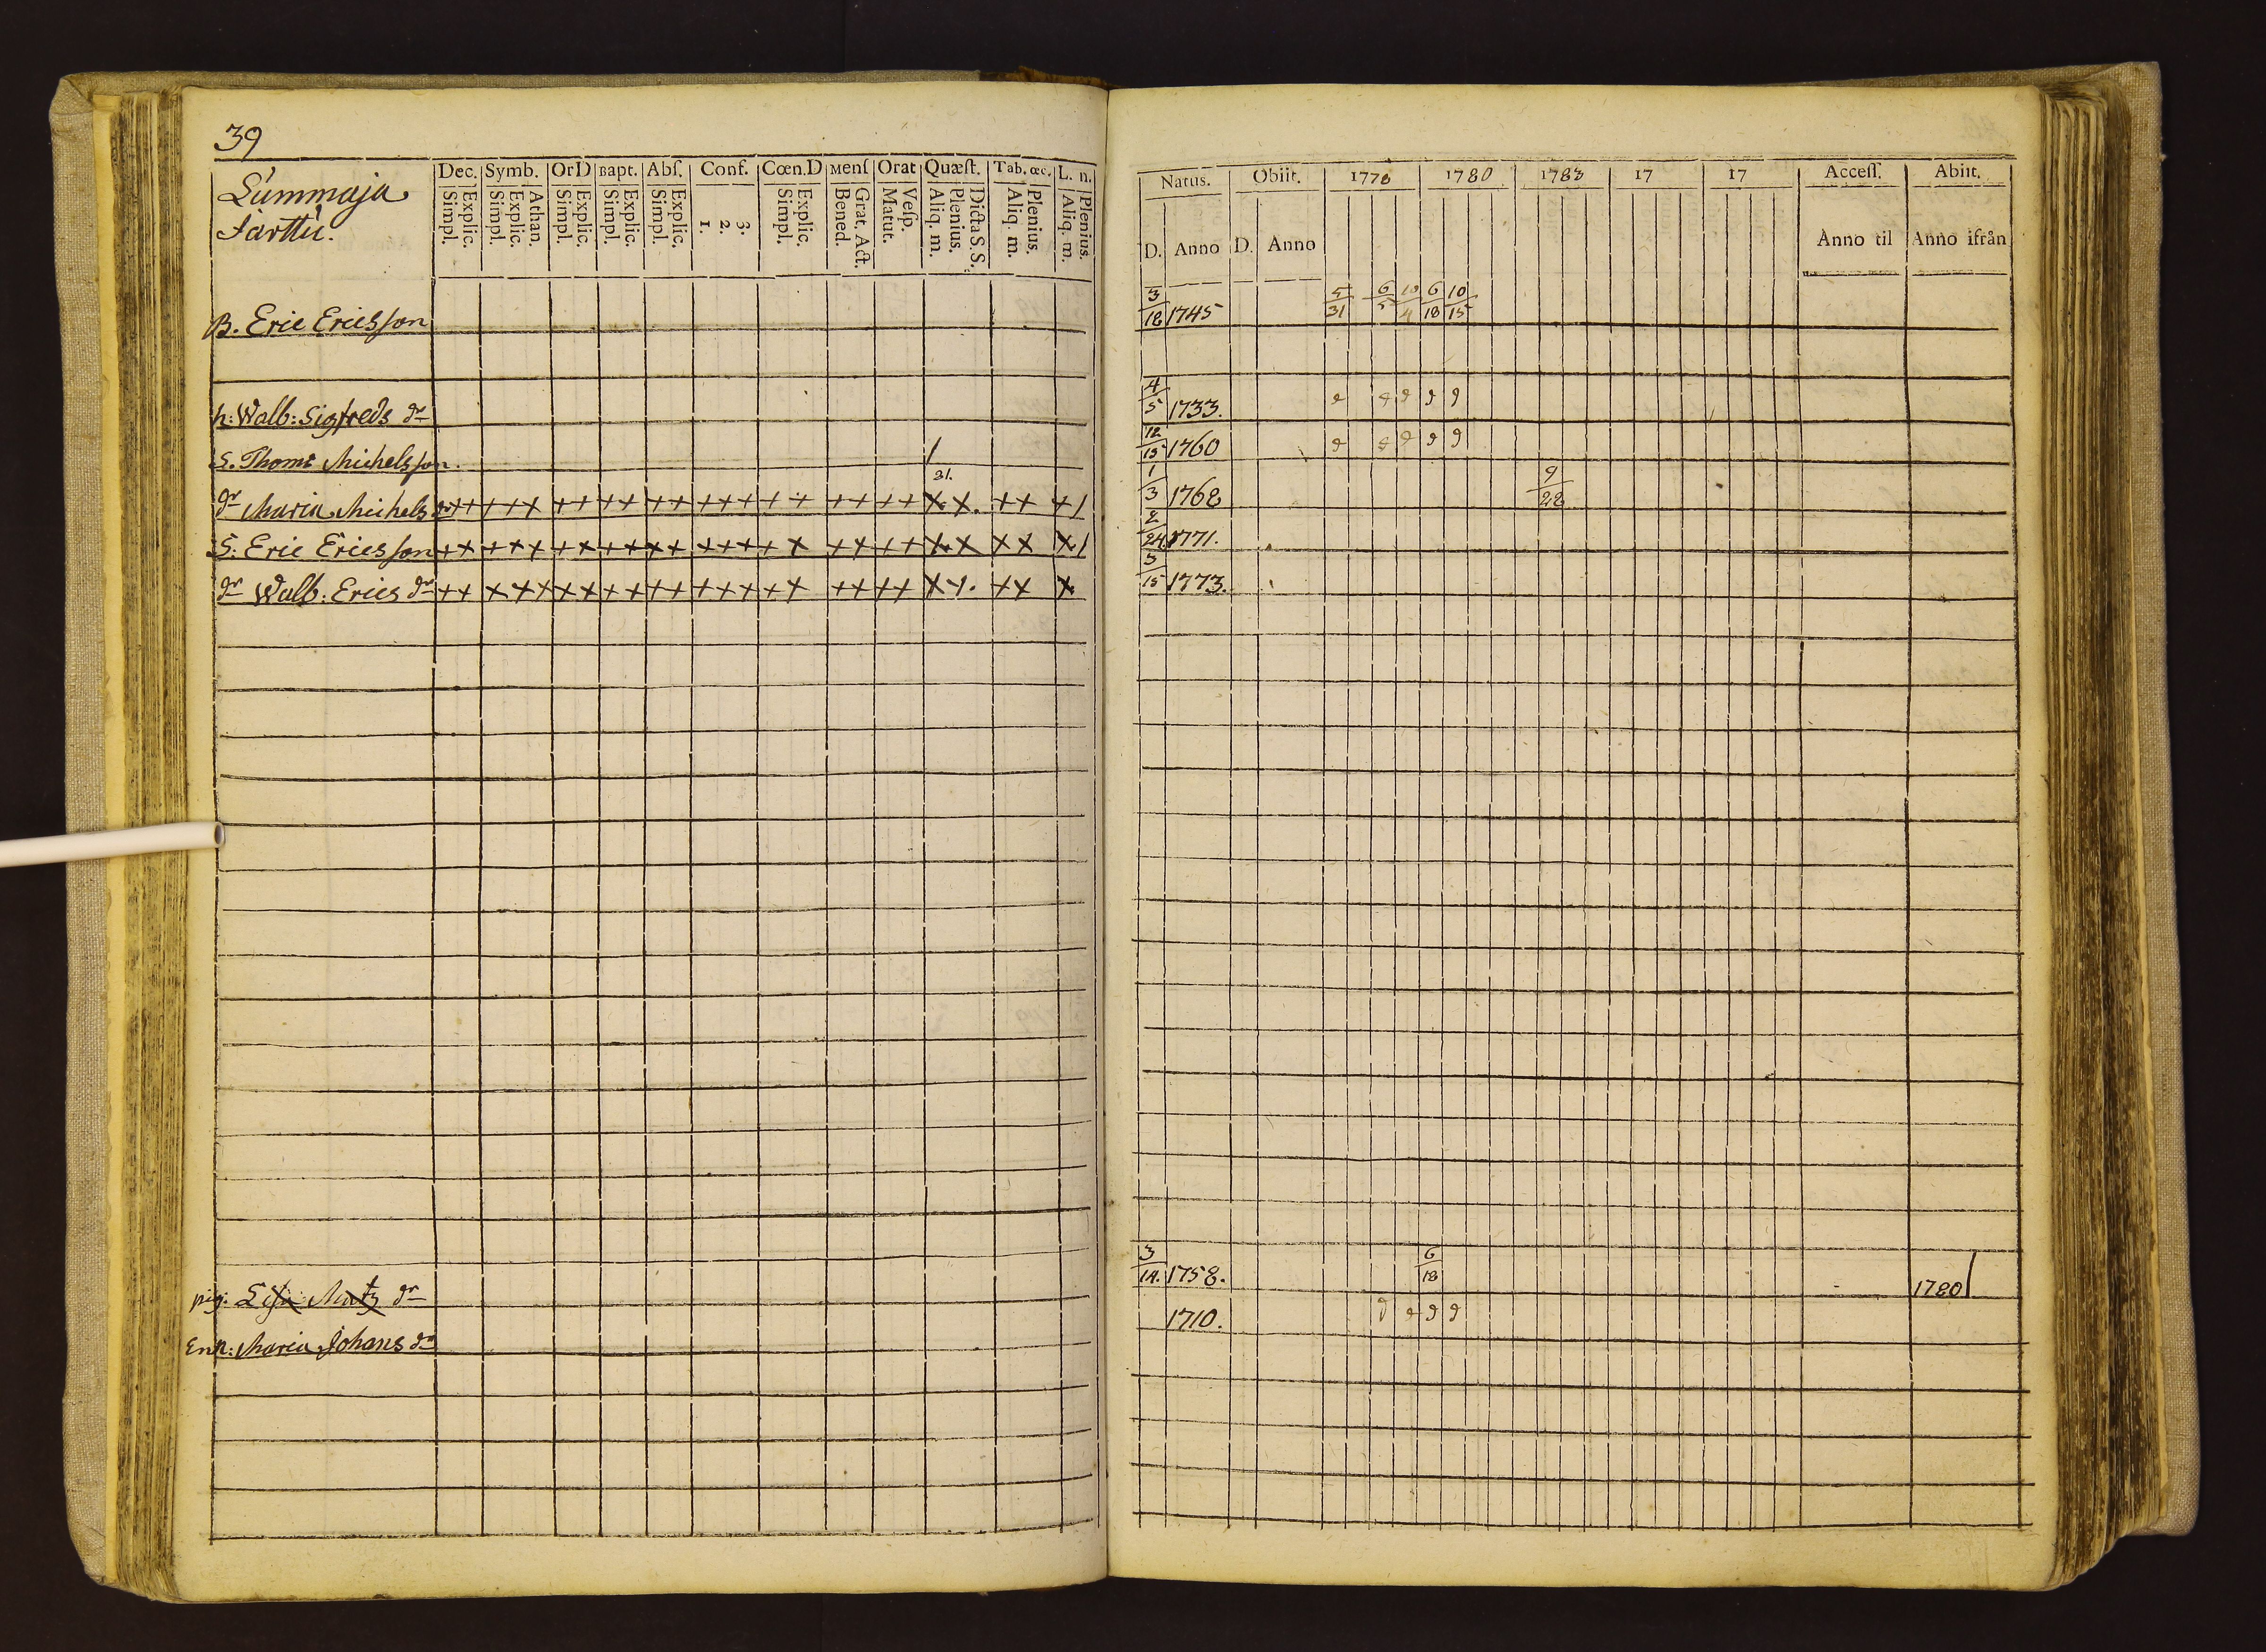 39
Dec. Symb. OrD Bapt. Abſ. Conf. Cœn.D Menſ Orat Quæſt. Tab. œc. L. n.
Explic. Simpl. Athan. Explic. Simpl. Explic. Simpl. Explic. Simpl. Explic. Simpl. 3. 2. 1. Explic. Simpl. Grat. Act. Bened. Veſp. Matut. Dicta S. S. Plenius. Aliq. m. Plenius. Aliq. m. Plenius. Aliq. m.
Summaja
Järttú.
B. Eric Ericsson
h: Walb: Sigfreds dr
S. Thom: Michelsson
31.
dr Maria Michels dr ++ +++ ++ ++ ++ +++ ++ ++ ++ ++. ++ +/
S: Eric Ericsson ++ +++ ++ ++ ++ +++ ++ ++ ++ ++ ++ +/
dr Walb: Erics dr ++ +++ ++ ++ ++ +++ ++ ++ ++ ++. ++ +
pig: Lisa Matz dr
Enk: Maria Johans dr
Natus. Obiit. 1778 1780 1783 17 17 Acceſſ. Abiit.
D. Anno D. Anno Anno til Anno ifrån
3/18 1745 5/31 6/5 10/4 6/18 10/15
4/5 1733.
12/15 1760
1/3 1768 9/28
2/24 1771.
3/15 1773.
3/14. 1758. 6/18 1780
1710.